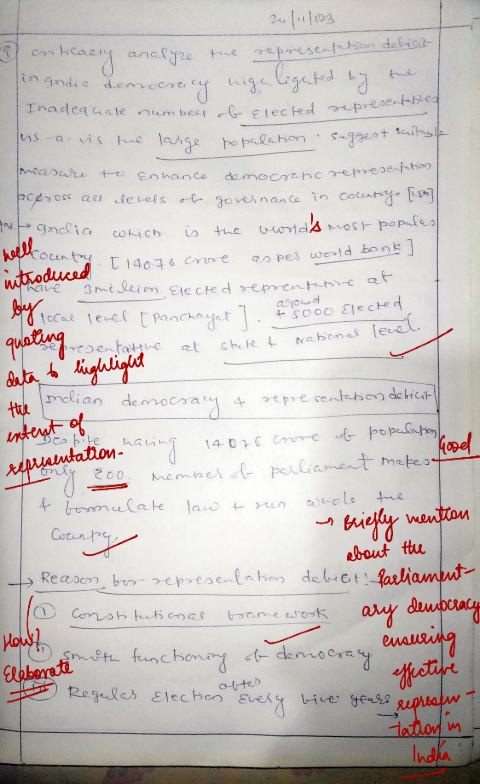 24/11/23
Q critically analyze the representation deficit
in India democracy highlighted by the
Inadequate number of elected representatives
vis-a-vis the large population. suggest suitable
measure to enhance democratic representation
across all levels of governance in country. [15M]
Ans. → India which is the world's most populas
country. [140.76 crore as per world bank]
have 3 million elected reprentative at
local level [panchayat]. around + 5000 Elected
representative at state & National level.
well introduced by quoting data to highlight the extent of representation-
Indian democracy & representation deficit
Despite having 140.76 crore of population
only 800 member of parliament makes
Good
& formulate law & run whole the
Country
→ Briefly mention about the Parliament-ary democracy ensuring effective represen-tation in India
→ Reason for representation deficit:-
① Constitutional framework
How? Elaborate
smoth functioning of democracy
Regular Election after Every five years